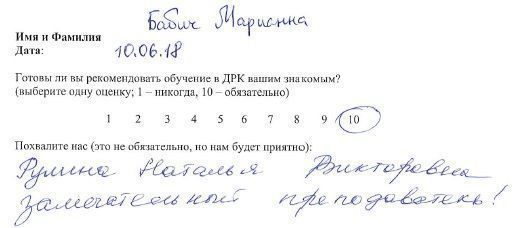 Бабич Марианна
Имя и Фамилия
Дата: 10.06.18
Готовы ли вы рекомендовать обучение в ДРК вашим знакомым?
(выберите одну оценку; 1 – никогда, 10 – обязательно)
1 2 3 4 5 6 7 8 9 10
Похвалите нас (это не обязательно, но нам будет приятно):
Рулина Наталья Викторовна
замечательный преподаватель!